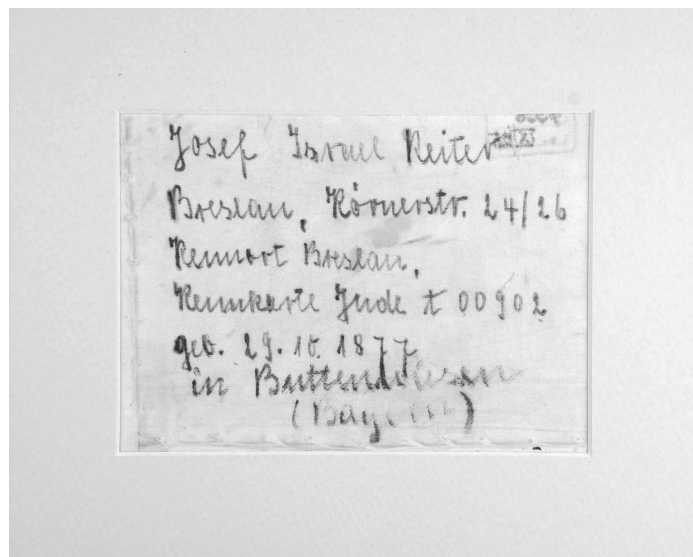 Josef Israel Reiter
Breslau, Körnerstr. 24/26
Kennort Breslau,
Kennkarte Jude t 00902
geb. 29.10. 1877
in Buttenwiesen
(Bayern)